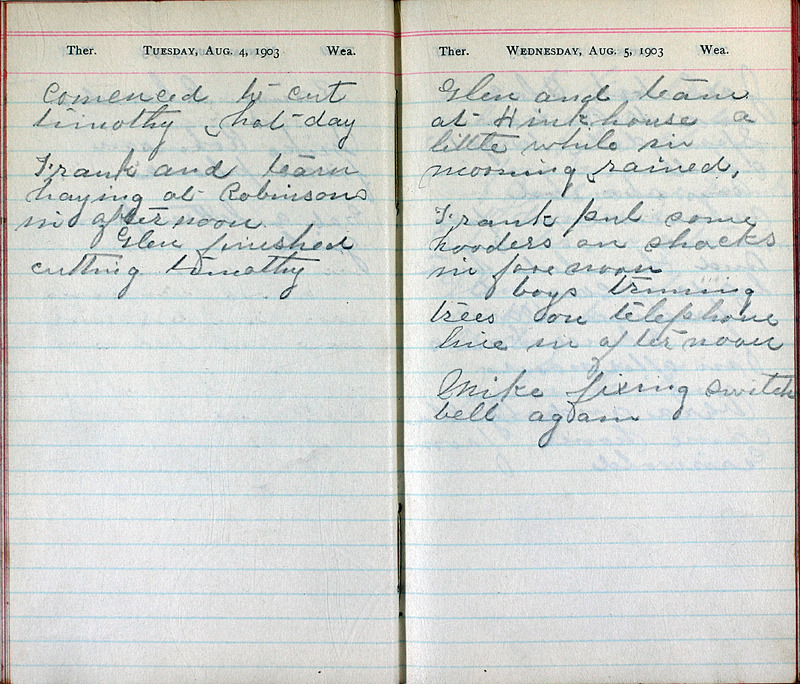 Ther. Tuesday, Aug. 4, 1903 Wea.
Comenced to cut
timothy, hot day
Frank and team
haying at Robinsons
in afternoon
Glen finished
cutting timothy
Ther. Wednesday, Aug. 5, 1903 Wea.
Glen and team
at Hinkhouse a
little while in
morning, rained,
Frank put some
hooders on shocks
in forenoon
boys triming
trees on telephone
line in afternoon
Mike fixing switch
bell again